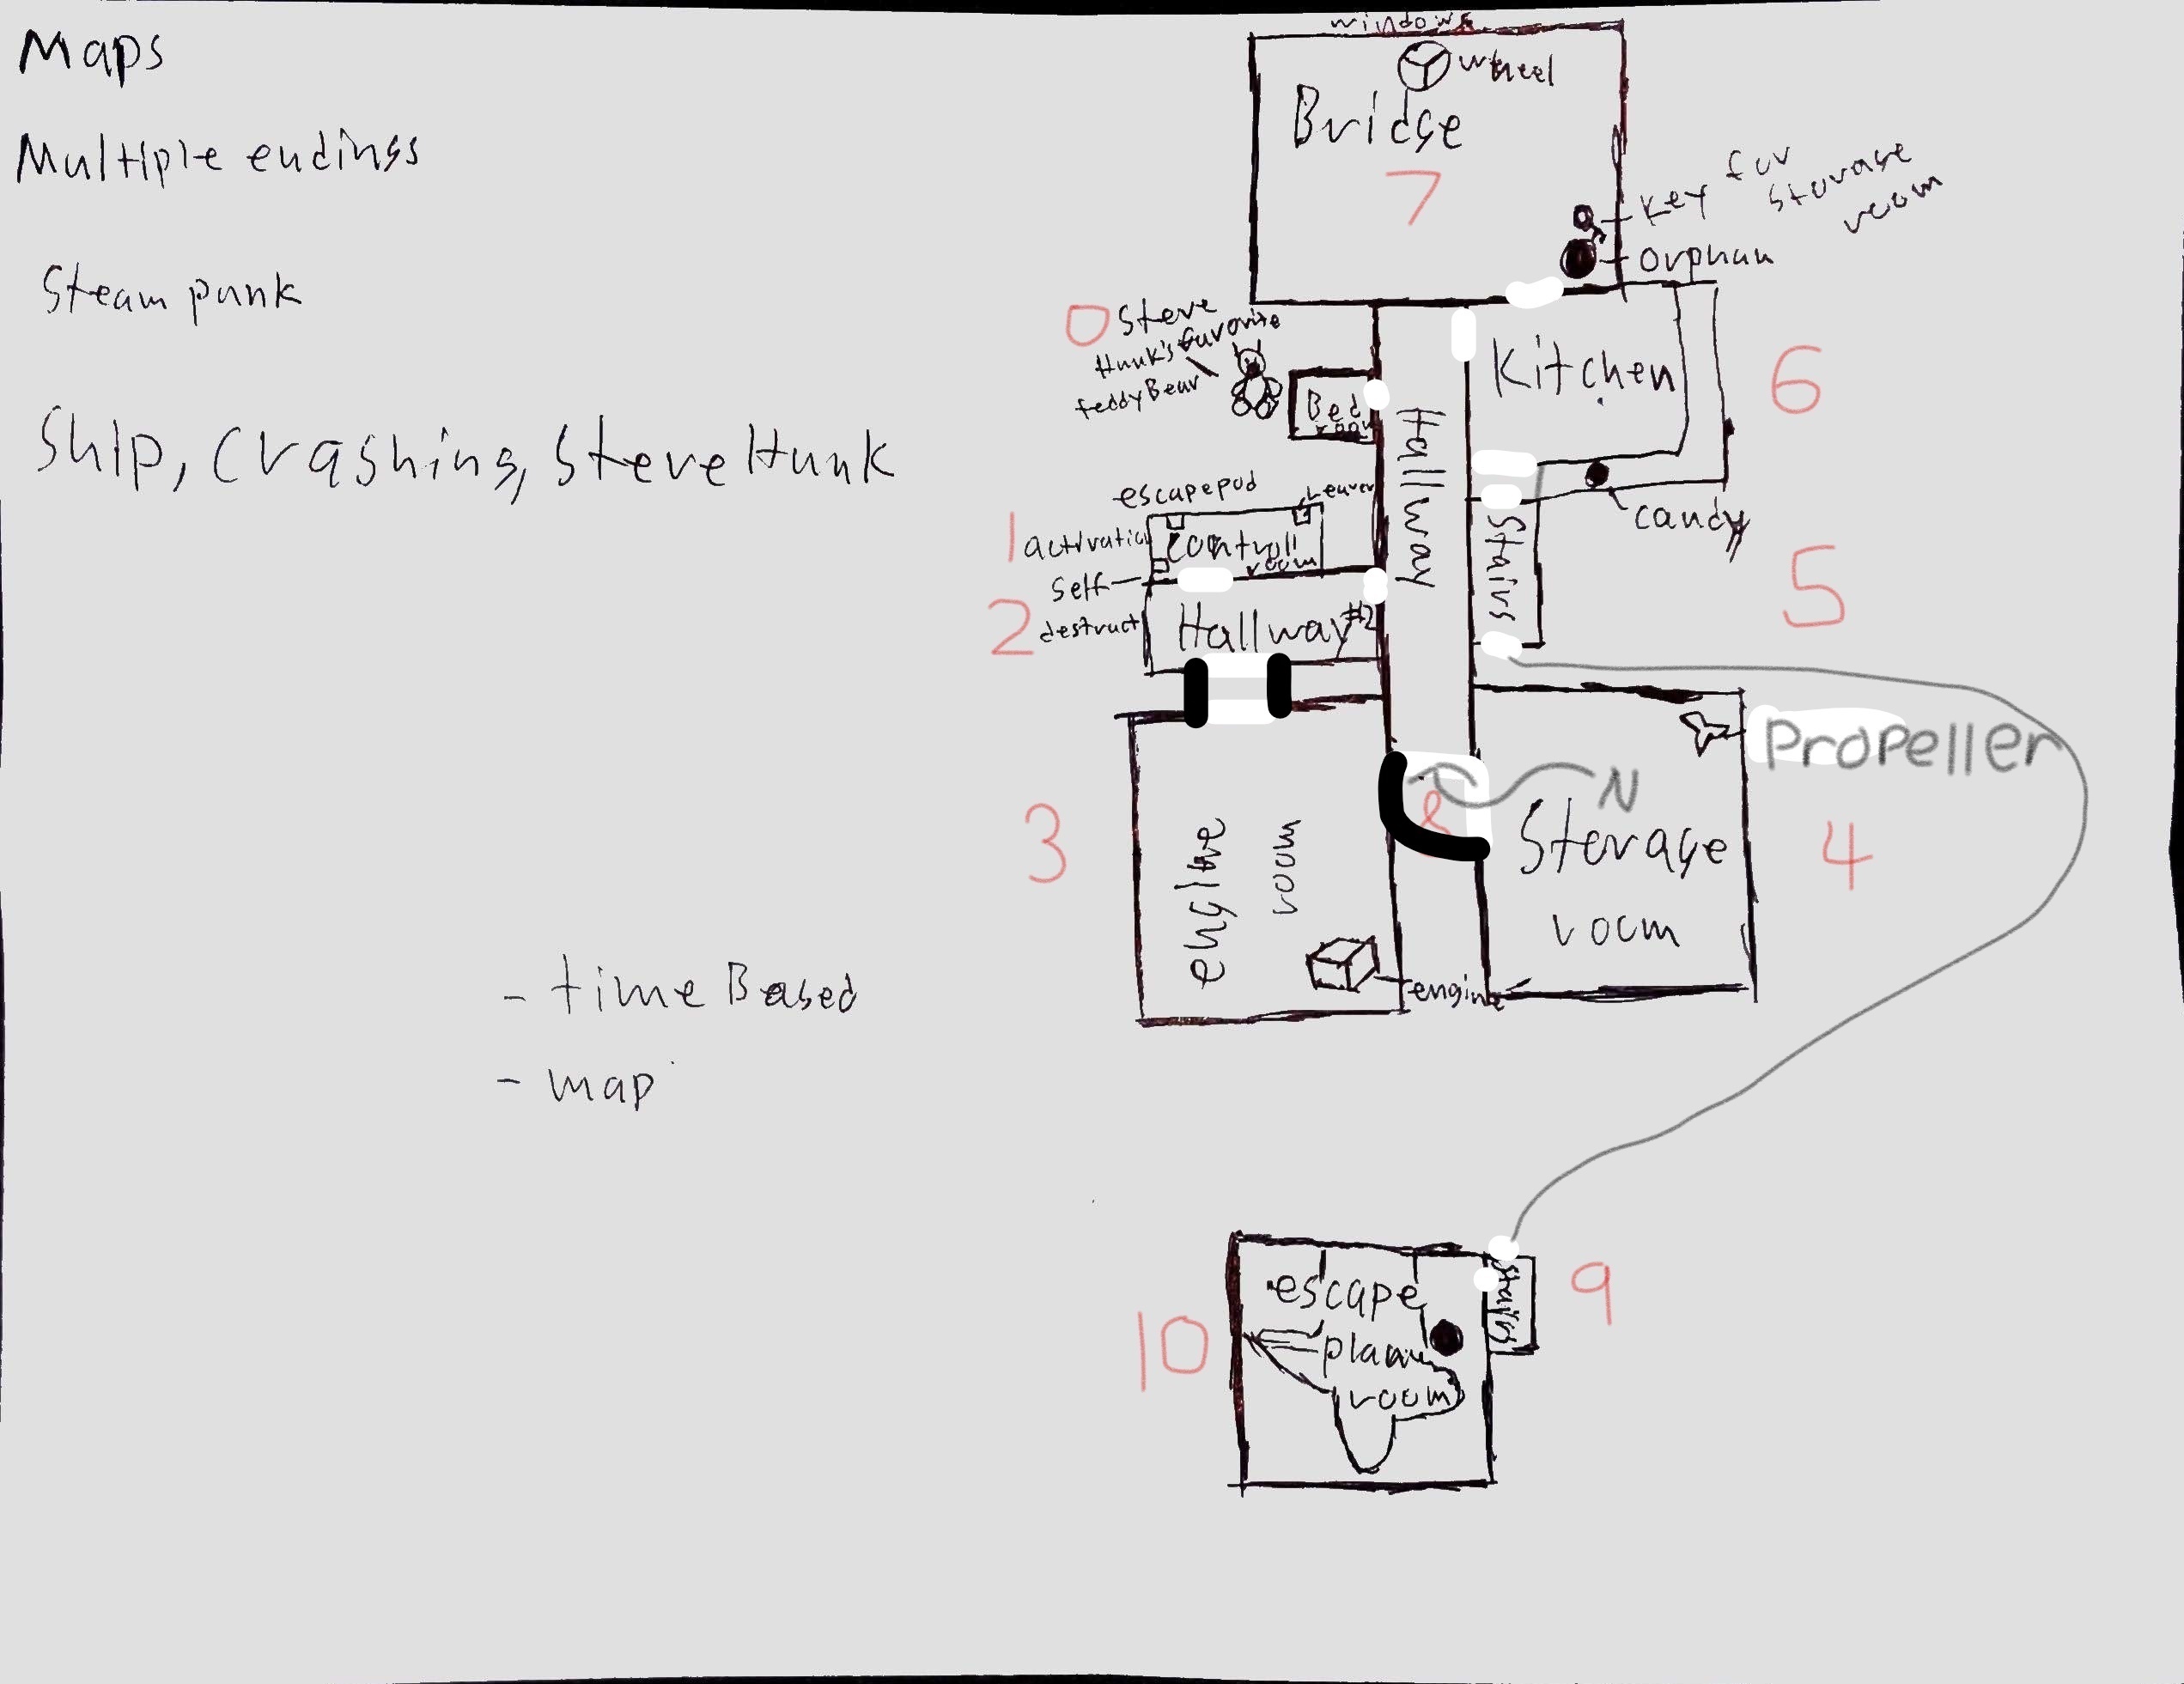 Maps
Multiple endings
Steam punk
Ship, crashing, Steve Hunk
- time Based
- map
windows
wheel
Bridge
7
key for
storage
room
orphan
0 Steve
Hunk's favorite
teddy Bear
Bed
room
Hallway
Kitchen
6
candy
Stairs
5
escape pod
Leaver
1 activation
control
room
self
destruct
2
Hallway #2
Propeller
N
8
3
engine
room
engine
Storage
room
4
escape
plan
room
Stairs
9
10